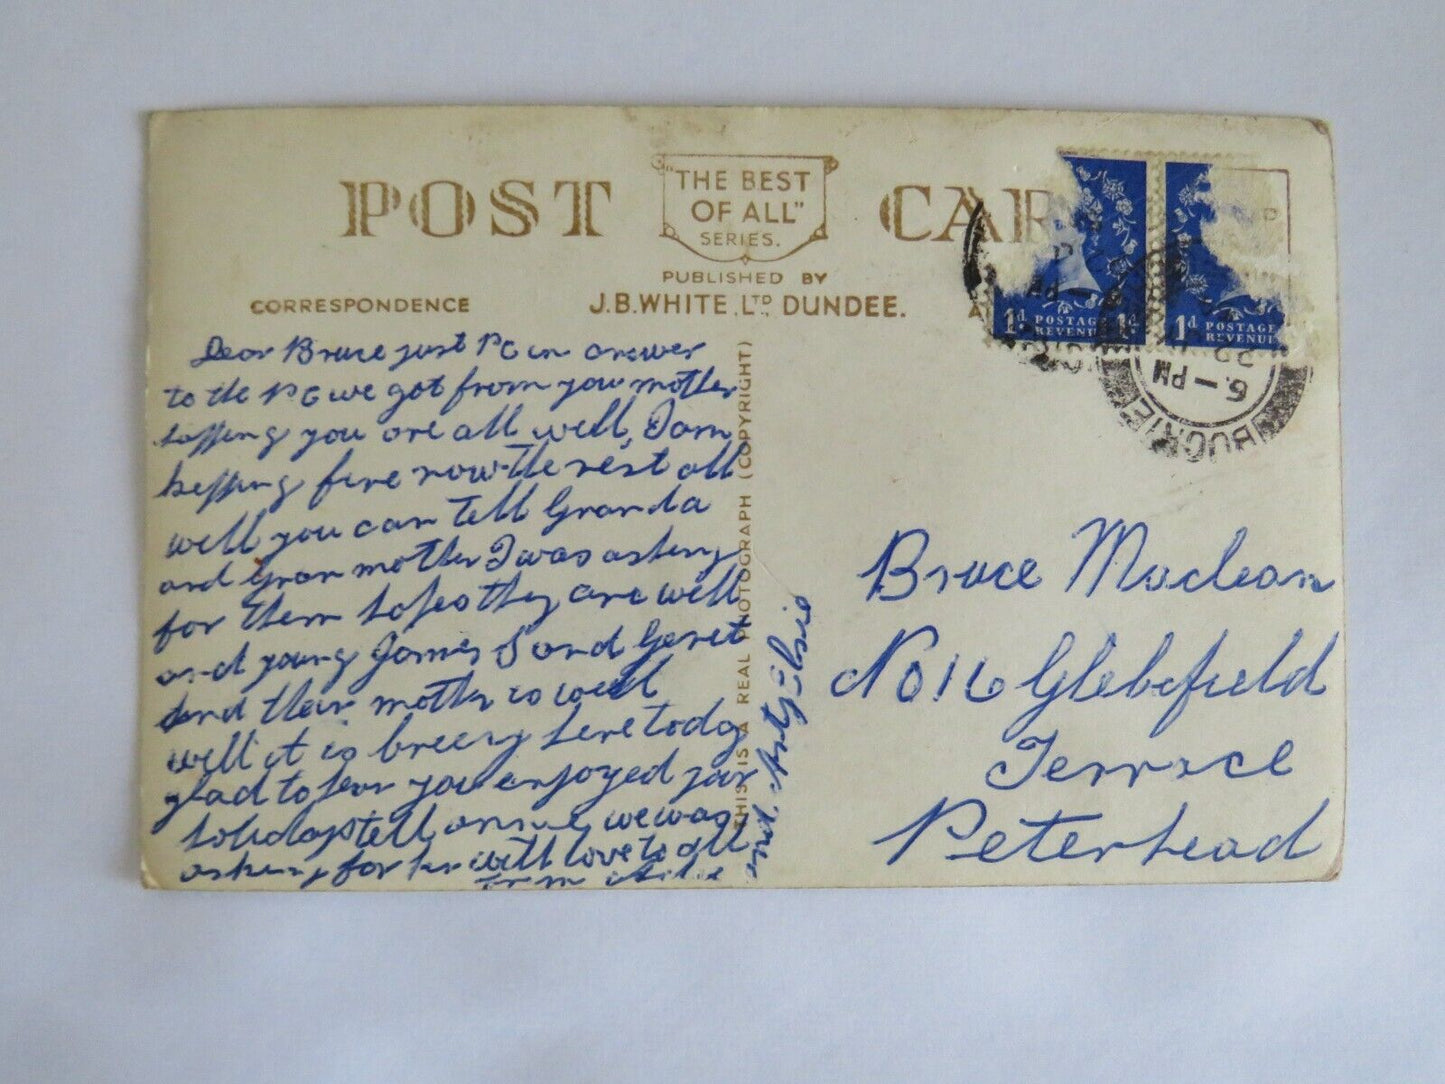 POST CAR
"THE BEST
OF ALL"
SERIES.
PUBLISHED BY
CORRESPONDENCE
J.B. WHITE, LTD DUNDEE.
1d POSTAGE 1d
REVENUE
1d POSTAGE
REVENUE
6 - PM
22
BUCKIE
Dear Bruce just PC in answer
to the PC we got from your mother
hopping you are all well, I am
kepping fine now the rest all
well you can tell Granda
and Gran mother I was asking
for them hopes they are well
and young James S and Geret
and their mother is well
well it is breezy here today
glad to hear you enjoyed your
holidays tell we was
asking for her with love to all
from and Elsie
THIS IS A REAL PHOTOGRAPH (COPYRIGHT)
Bruce Maclean
No 16 Glebefield
Terrace
Peterhead